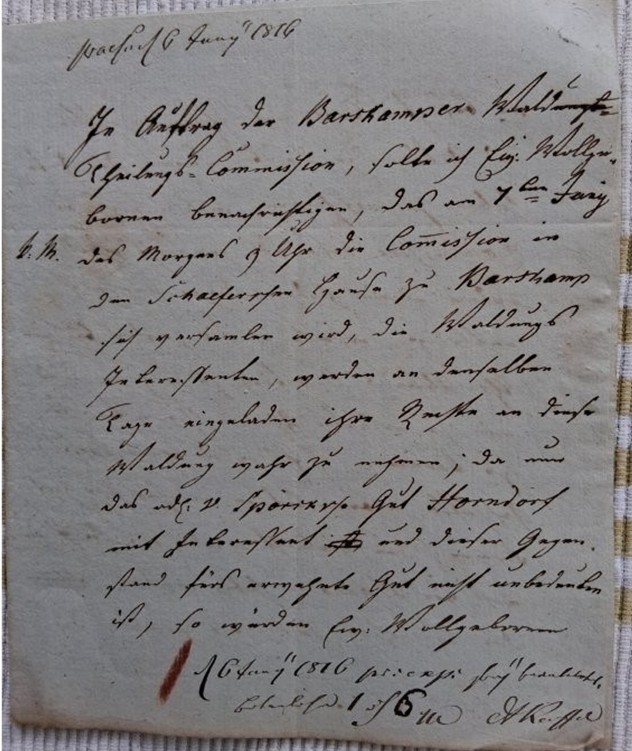 6 Juny 1816
In Auftrag der Barskamper Waldungs-
Theilungs-Commission, solte ich Ew: Wollge-
bornen benachrichtigen, das am 7ten Juny
d. M. des Morgens 9 Uhr die Com̄ission in
den Schaeferschen Hause zu Barskamp
sich versamlen wird, die Waldungs
Interessenten, werden an denselben
Tage eingeladen ihre Rechte an diese
Waldung wahr zu nehmen; da nun
das adl. v. Spörckesche Gut Horndorf
mit Interessent ist und dieser Gegen-
stand fürs erwehnte Gut nicht unbedeutend
ist, so würden Ew: Wollgebornen
6 Juny 1816